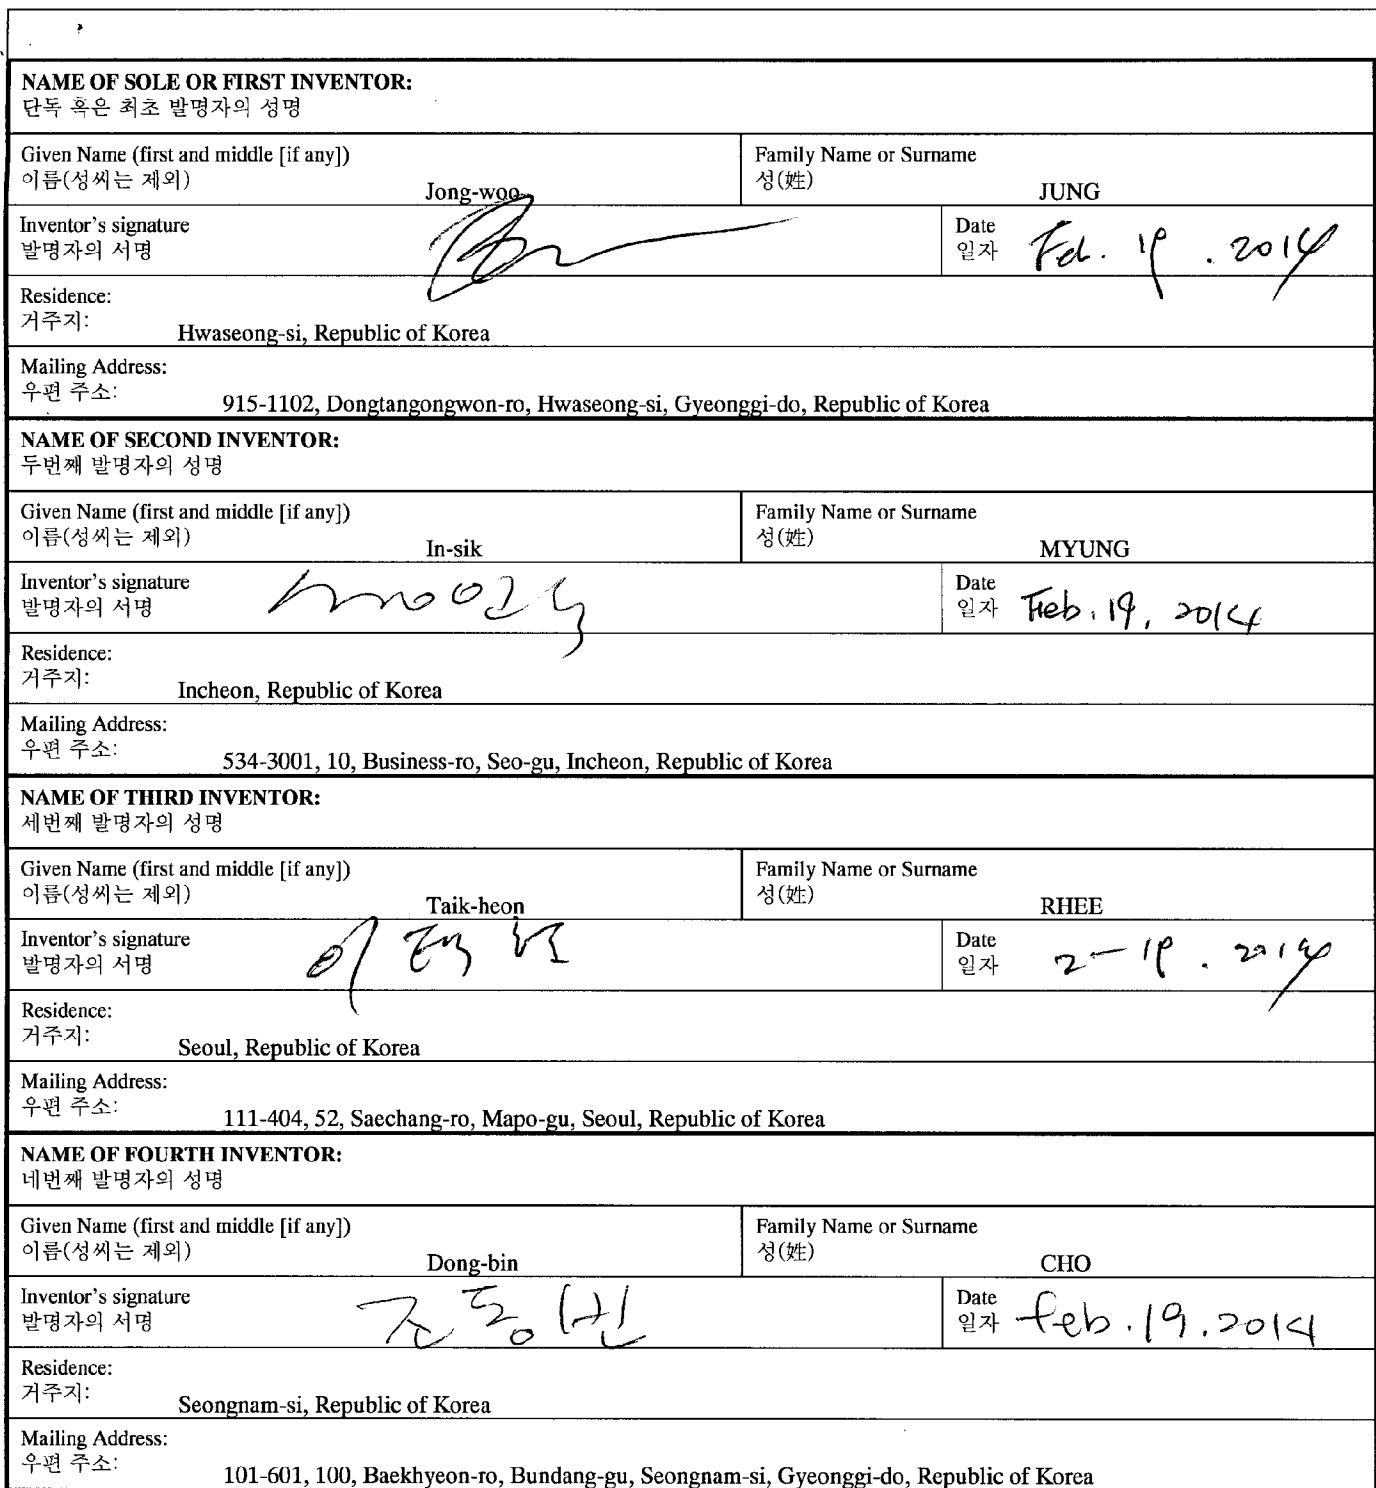 NAME OF SOLE OR FIRST INVENTOR:
단독 혹은 최초 발명자의 성명
Given Name (first and middle [if any])
이름(성씨는 제외)
Jong-woo
Family Name or Surname
성(姓)
JUNG
Inventor's signature
발명자의 서명
Date
일자
Feb. 19. 2014
Residence:
거주지:
Hwaseong-si, Republic of Korea
Mailing Address:
우편 주소:
915-1102, Dongtangongwon-ro, Hwaseong-si, Gyeonggi-do, Republic of Korea
NAME OF SECOND INVENTOR:
두번째 발명자의 성명
Given Name (first and middle [if any])
이름(성씨는 제외)
In-sik
Family Name or Surname
성(姓)
MYUNG
Inventor's signature
발명자의 서명
Date
일자
Feb. 19, 2014
Residence:
거주지:
Incheon, Republic of Korea
Mailing Address:
우편 주소:
534-3001, 10, Business-ro, Seo-gu, Incheon, Republic of Korea
NAME OF THIRD INVENTOR:
세번째 발명자의 성명
Given Name (first and middle [if any])
이름(성씨는 제외)
Taik-heon
Family Name or Surname
성(姓)
RHEE
Inventor's signature
발명자의 서명
이택헌
Date
일자
2-19. 2014
Residence:
거주지:
Seoul, Republic of Korea
Mailing Address:
우편 주소:
111-404, 52, Saechang-ro, Mapo-gu, Seoul, Republic of Korea
NAME OF FOURTH INVENTOR:
네번째 발명자의 성명
Given Name (first and middle [if any])
이름(성씨는 제외)
Dong-bin
Family Name or Surname
성(姓)
CHO
Inventor's signature
발명자의 서명
조동빈
Date
일자
feb. 19. 2014
Residence:
거주지:
Seongnam-si, Republic of Korea
Mailing Address:
우편 주소:
101-601, 100, Baekhyeon-ro, Bundang-gu, Seongnam-si, Gyeonggi-do, Republic of Korea